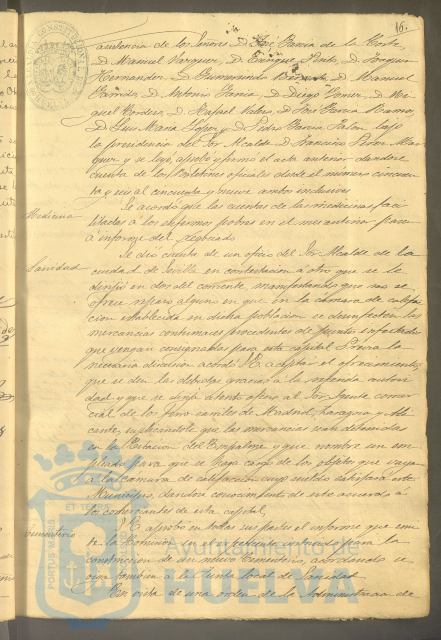 16.
asistencia de los Señores D. José García de la Corte
D. Manuel Vazquez, D. Enrique D. Joaquin
Hernandez, D. Gumersindo D. Manuel
Garrido, D. Antonio García, D. Diego D. Mi-
guel Cordero, D. Rafael D. José García Ramos,
D. Luis María Lopez y D. Pedro García Jalon bajo
la presidencia del Sor. Alcalde D. Francisco Mar-
quez y se leyó, aprobó y firmó el acta anterior dandose
cuenta de los Boletines oficiales desde el numero cincuen-
ta y seis al cincuenta y nueve ambos inclusives
Medicina
Se acordó que las cuentas de las medicinas faci-
litadas a los enfermos pobres en el mes anterior pasen
á informe del Negociado
Sanidad
Se dió cuenta de un oficio del Sor. Alcalde de la
ciudad de Sevilla en contestacion á otro que se le
dirijió en dos del corriente, manifestando que no se
ofrece reparo alguno en que en la cámara de calefac-
cion establecida en dicha poblacion se desinfecten las
mercancias contumaces procedentes de puntos infestados
que vengan consignadas para esta capital. Previa la
necesaria discusion acordó S.E. aceptar el ofrecimiento,
que se den las debidas gracias a la referida autori-
dad y que se dirija atento oficio al Sor. Agente comer-
cial de los ferro-carriles de Madrid, Zaragoza y Ali-
cante, suplicandole que las mercancias sean detenidas
en la Estacion del Empalme y que nombre un em-
pleado para que se haga cargo de los objetos que vayan
a la camara de calefaccion cuyo sueldo satisfará este
Municipio, dandose conocimiento de este acuerdo á
los comerciantes de esta capital.
Cementerio
S.E. aprobó en todas sus partes el informe que emi-
te la Comision en el espediente instruido para la
construccion de un nuevo Cementerio, acordando se
oiga tambien a la Junta local de Sanidad
En vista de una orden de la Administracion de
PORTUS MARIS
ET TERRE
Ayuntamiento de
HUELVA